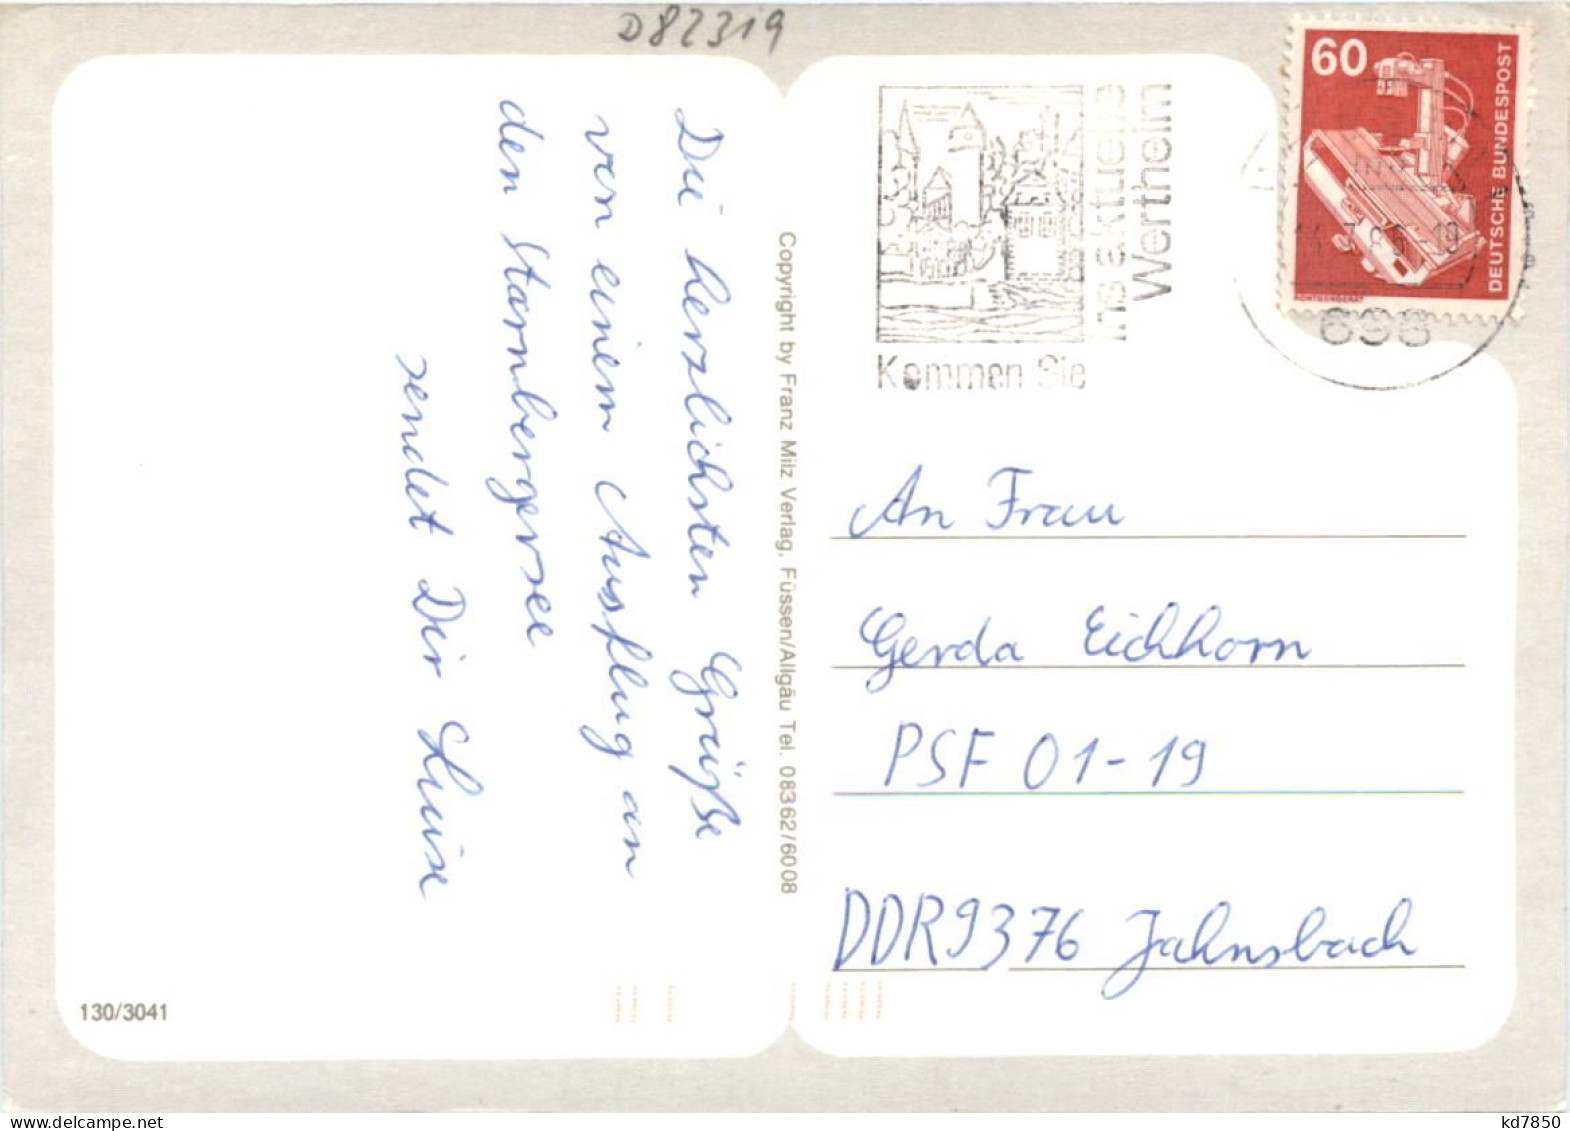 D82319
Die herzlichsten Grüße
von einem Ausflug an
den Starnbergersee
sendet Dir Luise
130/3041
Copyright by Franz Milz Verlag, Füssen/Allgäu Tel. 08362/6008
Kommen Sie
ins aktuelle
Wertheim
60
DEUTSCHE BUNDESPOST
698
An Frau
Gerda Eichhorn
PSF 01-19
DDR 9376 Jahnsbach
kd7850